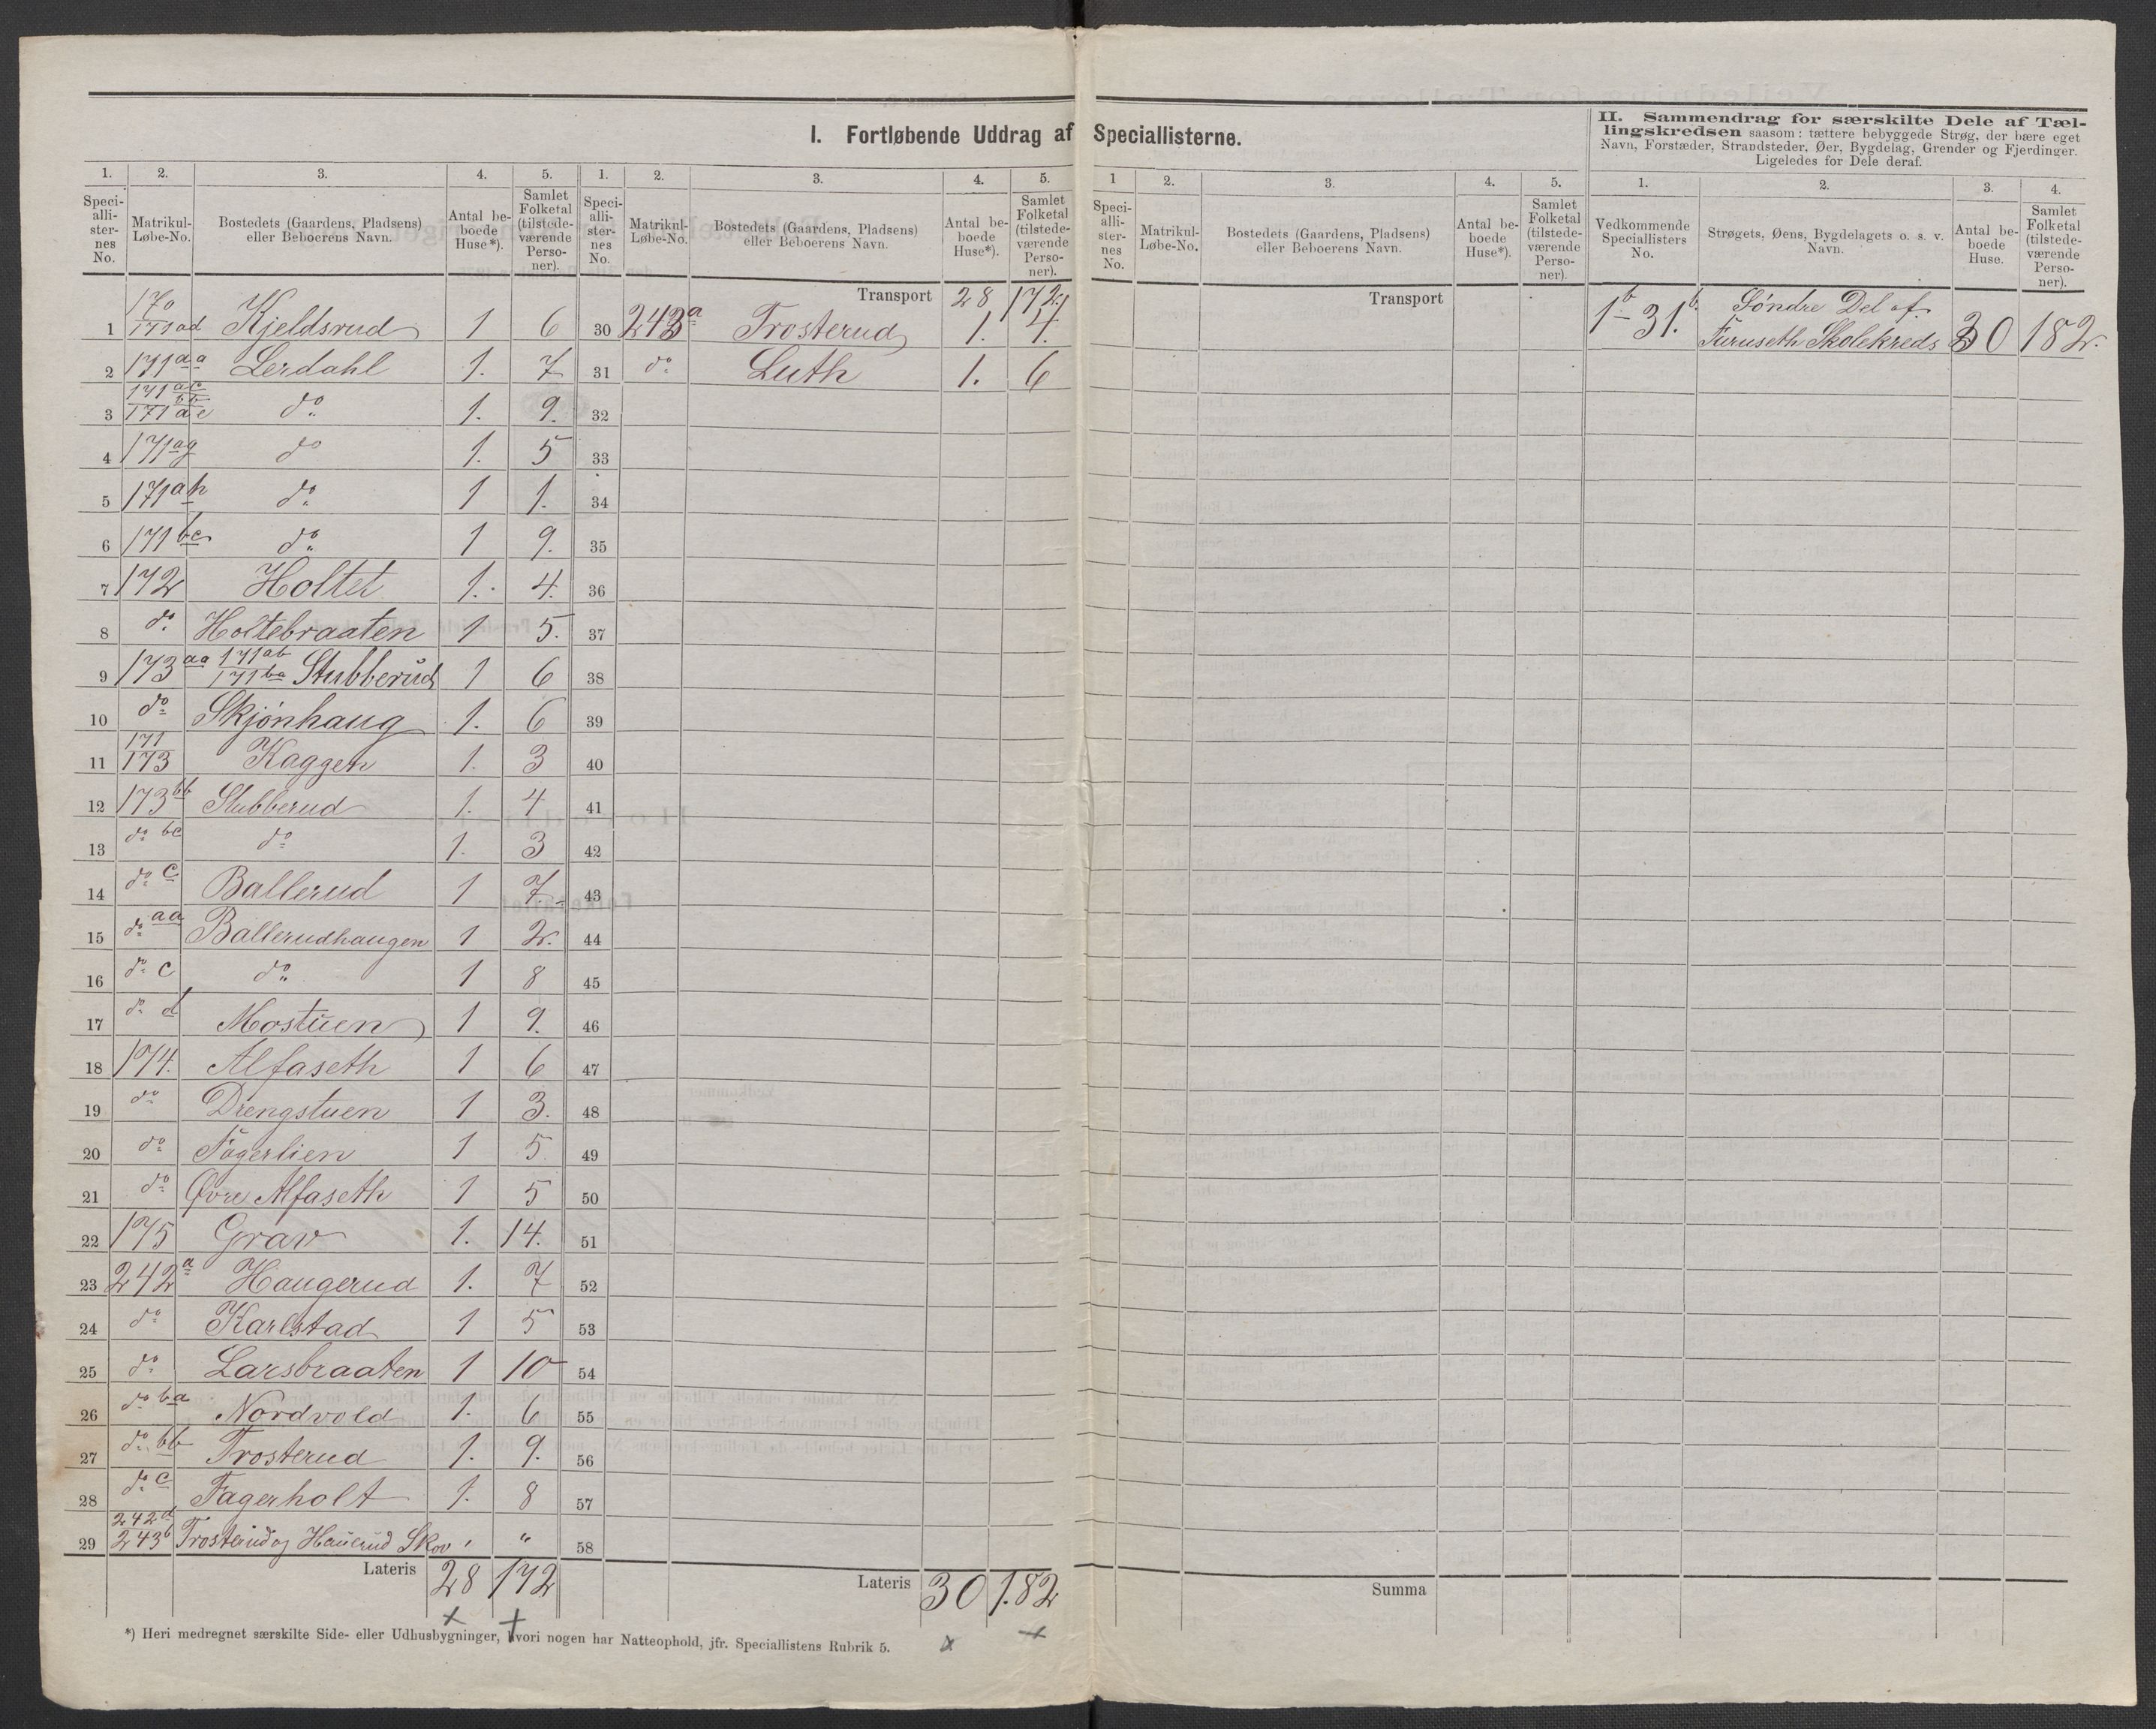 I. Fortløbende Uddrag af Speciallisterne.
1. 2. 3. 4. 5. 1. 2. 3. 4. 5.
Speciallisternes No. Matrikul-Løbe-No. Bostedets (Gaardens, Pladsens) eller Beboerens Navn. Antal beboede Huse*). Samlet Folketal (tilstedeværende Personer).
1 170/171ad Kjeldsrud 1 6
2 171aa Lerdahl 1. 7
3 171ac bb/171ae do 1. 9.
4 171ag do 1. 5
5 171ah do 1 1.
6 171bc do 1 9.
7 172 Holtet 1. 4.
8 do Holtebraaten 1 5.
9 173aa 171ab/171ba Stubberud 1 6
10 do Skjönhaug 1. 6
11 171/173 Kaggen 1. 3
12 173bb Stubberud 1. 4
13 do bc do 1. 3
14 do c Ballerud 1 7.
15 do aa Ballerudhaugen 1 2.
16 do c do 1 8
17 do d Mostuen 1 9.
18 174. Alfaseth 1 6
19 do Drengstuen 1 3.
20 do Fagerlien 1 5
21 do Øvre Alfaseth 1 5
22 175 Grav 1. 14.
23 242a Haugerud 1. 7
24 do Karlstad 1 5
25 do Larsbraaten 1 10
26 do ba Nordvold 1. 6
27 do bb Trosterud 1. 9.
28 do c Fagerholt 1. 8
29 242d/243b Trosterud og Hauerud Skov " "
Lateris 28 172
*) Heri medregnet særskilte Side- eller Udhusbygninger, hvori nogen har Natteophold, jfr. Speciallistens Rubrik 5.
Speciallisternes No. Matrikul-Løbe-No. Bostedets (Gaardens, Pladsens) eller Beboerens Navn. Antal beboede Huse*). Samlet Folketal (tilstedeværende Personer).
Transport 28 172
30 243a Trosterud 1. 4.
31 do Luth 1. 6
32
33
34
35
36
37
38
39
40
41
42
43
44
45
46
47
48
49
50
51
52
53
54
55
56
57
58
Lateris 30 182
1 2. 3. 4. 5.
Speciallisternes No. Matrikul-Løbe-No. Bostedets (Gaardens, Pladsens) eller Beboerens Navn. Antal beboede Huse*). Samlet Folketal (tilstedeværende Personer).
Transport
Summa
II. Sammendrag for særskilte Dele af Tællingskredsen saasom: tættere bebyggede Strøg, der bære eget
Navn, Forstæder, Strandsteder, Øer, Bygdelag, Grender og Fjerdinger.
Ligeledes for Dele deraf.
1. 2. 3. 4.
Vedkommende Speciallisters No. Strøgets, Øens, Bygdelagets o. s. v. Navn. Antal beboede Huse. Samlet Folketal (tilstedeværende Personer).
1b - 31.b Söndre Del af
Furuseth Skolekreds 30 182.